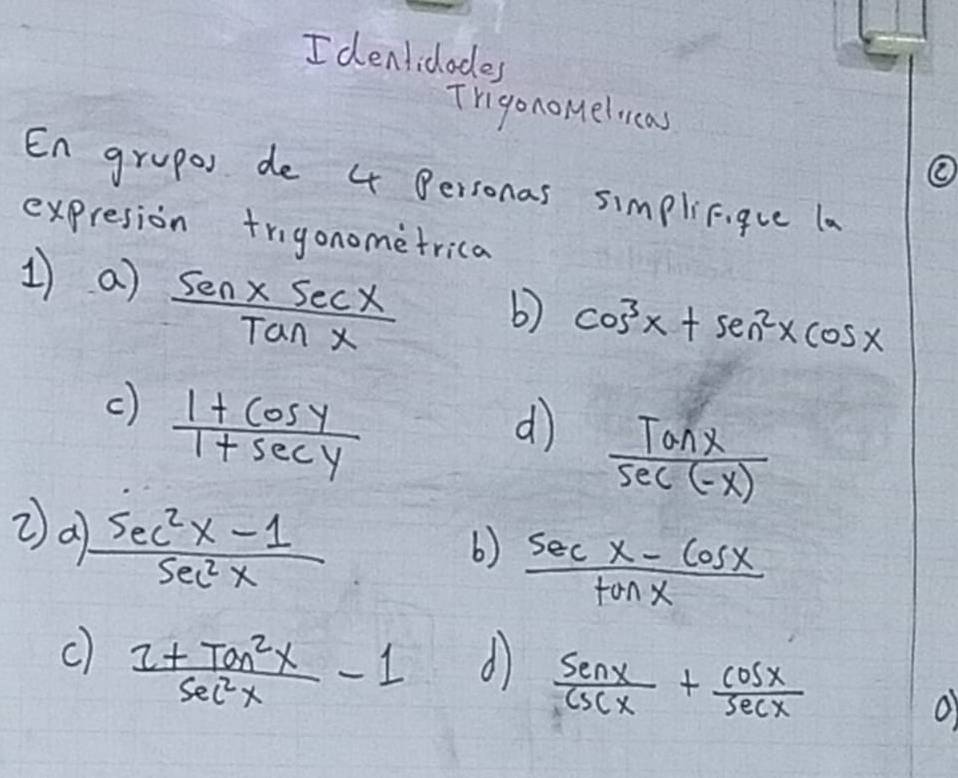 Identidades
Trigonometricas
En grupos de 4 Personas simplifique la
expresión trigonométrica
1) a) Sen x Sec x / Tan x b) cos³x + sen²x cos x
c) 1 + Cos y / 1 + sec y d) Tan x / sec (-x)
2) a) Sec²x - 1 / Sec²x b) Sec x - Cos x / tan x
c) 2 + Tan²x / Sec²x - 1 d) Sen x / Csc x + cos x / Sec x
c
a)